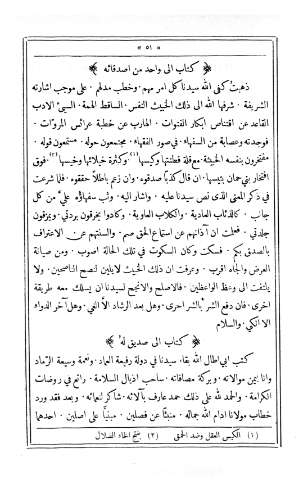 ﴿ ٥١ ﴾
﴿ كتاب الى واحد من اصدقائه ﴾
ذهبت كفى الله سيدنا كل امر مهم . وخطب مدلهم . على موجب اشارته
الشريفة . شرفها الله الى ذلك الخبيث النفس . الساقط الهمة . السيئ الادب
القاعد عن اقتناص ابكار الفتوات . الهارب عن خطبة عرائس المروات .
فوجدته وعصابة من السفهاء . فى صور الفقهاء . مجتمعون حوله . مستمعون قوله .
مفتخرون بنفسه الخبيثة مع قلة فطنتها وكيسها (١) وكثرة خبلائها وخيسها (٢) فوق
افتخار بنى حمان بتيسها . ان قال كذبا صدقوه . وان زعم باطلا حققوه . فلما شرعت
فى ذكر المعنى الذى نص سيدنا عليه . واشار اليه . وثب سفهاؤه علىّ من كل
جانب . كالذئاب العادية . والكلاب العاوية . وكادوا يخرقون بردتى . ويمزقون
جلدتى . فعلمت ان آذانهم عن استماع الحق صم . والسنتهم عن الاعتراف
بالصدق بكم . فسكت وكان السكوت فى تلك الحالة اصوب . ومن صيانة
العرض والجاه اقرب . وعرفت ان ذلك الخبيث لايلين لنصح الناصحين . ولا
يلتفت الى وعظ الواعظين . فالاصلح والانجح لسيدنا ان يسلك معه طريقة
اخرى . فان دفع الشر بالشر احرى . وهل بعد الرشاد الا الغى . وهل آخر الدواء
الا الكى . والسلام
﴿ كتاب الى صديق له ﴾
كتب ابى اطال الله بقاء سيدنا فى دولة رفيعة العماد . ونعمة وسيعة الرماد
وانا بيمن موالاته . وبركة مصافاته . ساحب اذيال السلامة . راتع فى روضات
الكرامة . والحمد لله على ذلك حمد عارف بآلائه . شاكر لنعمائه . وبعد فقد ورد
خطاب مولانا ادام الله جماله . منبئا عن فصلين . مبنيا على اصلين . احدهما
(١) الكيس العقل وضد الحمق (٢) بفتح الخاء الضلال